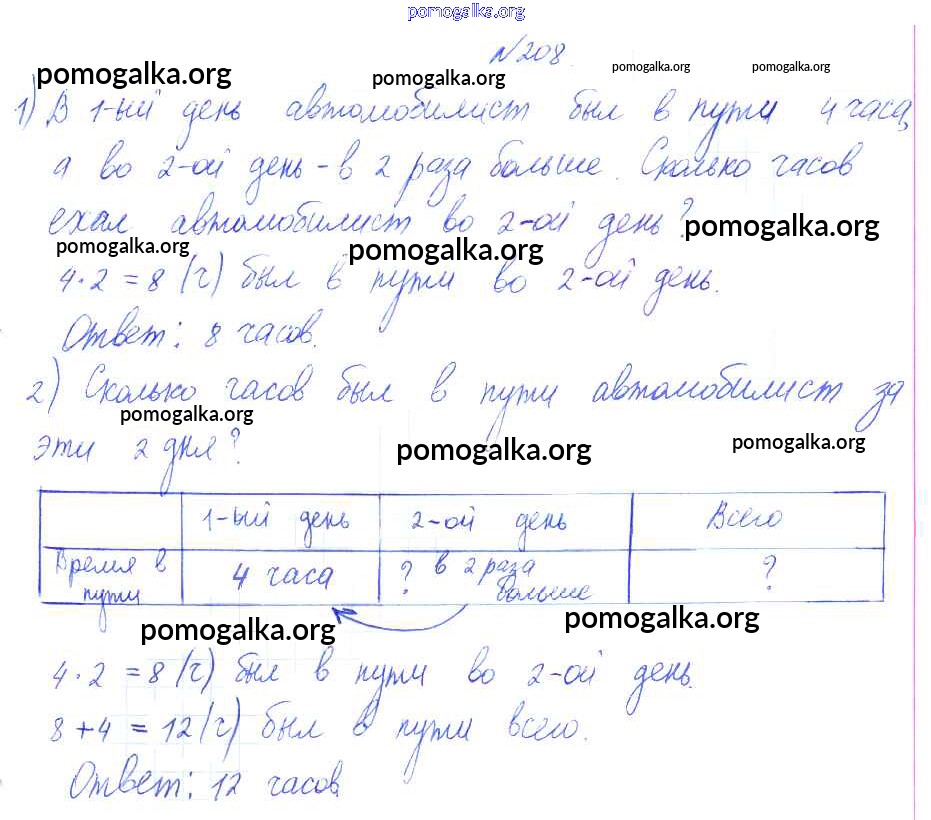 pomogalka.org
№208.
pomogalka.org pomogalka.org pomogalka.org pomogalka.org
1) В 1-ый день автомобилист был в пути 4 часа,
а во 2-ой день - в 2 раза больше. Сколько часов
ехал автомобилист во 2-ой день?
pomogalka.org pomogalka.org pomogalka.org
4·2=8 (ч) был в пути во 2-ой день.
Ответ: 8 часов.
2) Сколько часов был в пути автомобилист за
pomogalka.org
эти 2 дня?
pomogalka.org pomogalka.org
1-ый день 2-ой день Всего
Время в пути 4 часа ? в 2 раза больше ?
pomogalka.org pomogalka.org
4·2=8 (ч) был в пути во 2-ой день.
8+4=12 (ч) был в пути всего.
Ответ: 12 часов